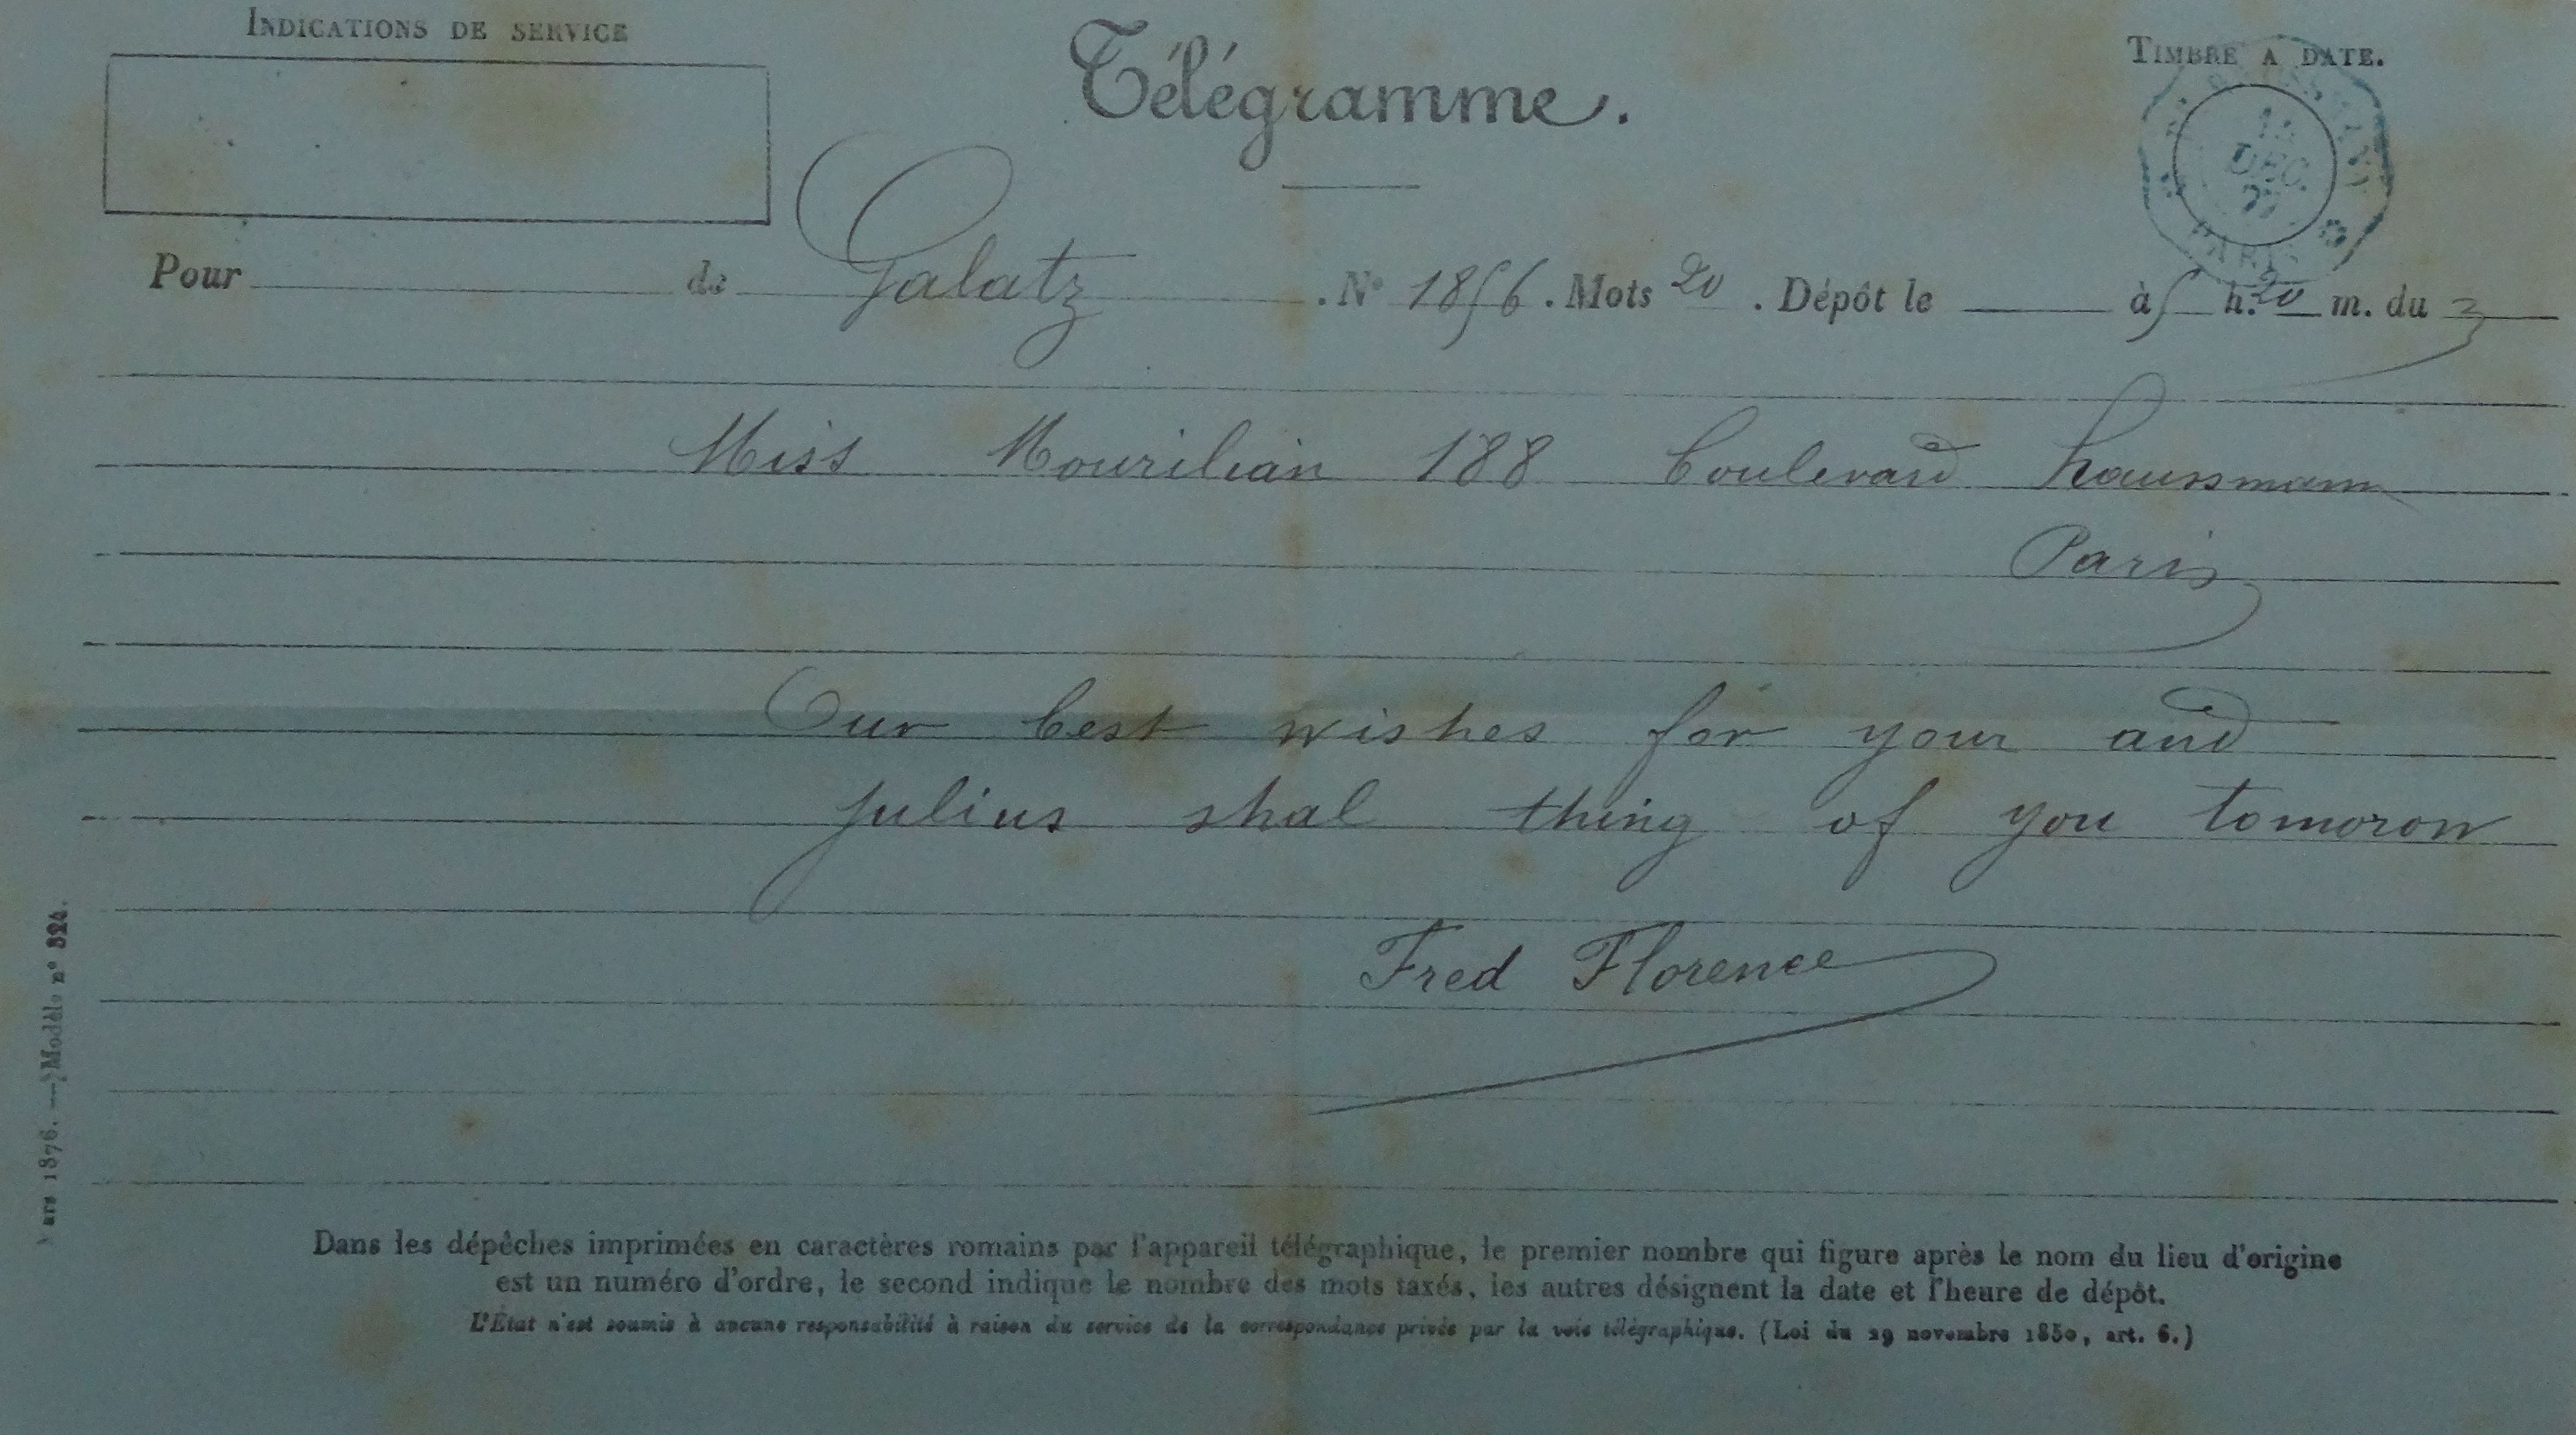 INDICATIONS DE SERVICE
Télégramme.
TIMBRE A DATE.
DEC.
PARIS
Pour de Galatz . N° 1856 . Mots 20 . Dépôt le à 5 h. 20 m. du
Miss Mourilian 188 boulevard haussmann
Paris
Our best wishes for your and
Julius shal thing of you tomorow
Fred Florence
Mars 1876. — Modèle n° 324.
Dans les dépêches imprimées en caractères romains par l'appareil télégraphique, le premier nombre qui figure après le nom du lieu d'origine
est un numéro d'ordre, le second indique le nombre des mots taxés, les autres désignent la date et l'heure de dépôt.
L'État n'est soumis à aucune responsabilité à raison du service de la correspondance privée par la voie télégraphique. (Loi du 29 novembre 1850, art. 6.)